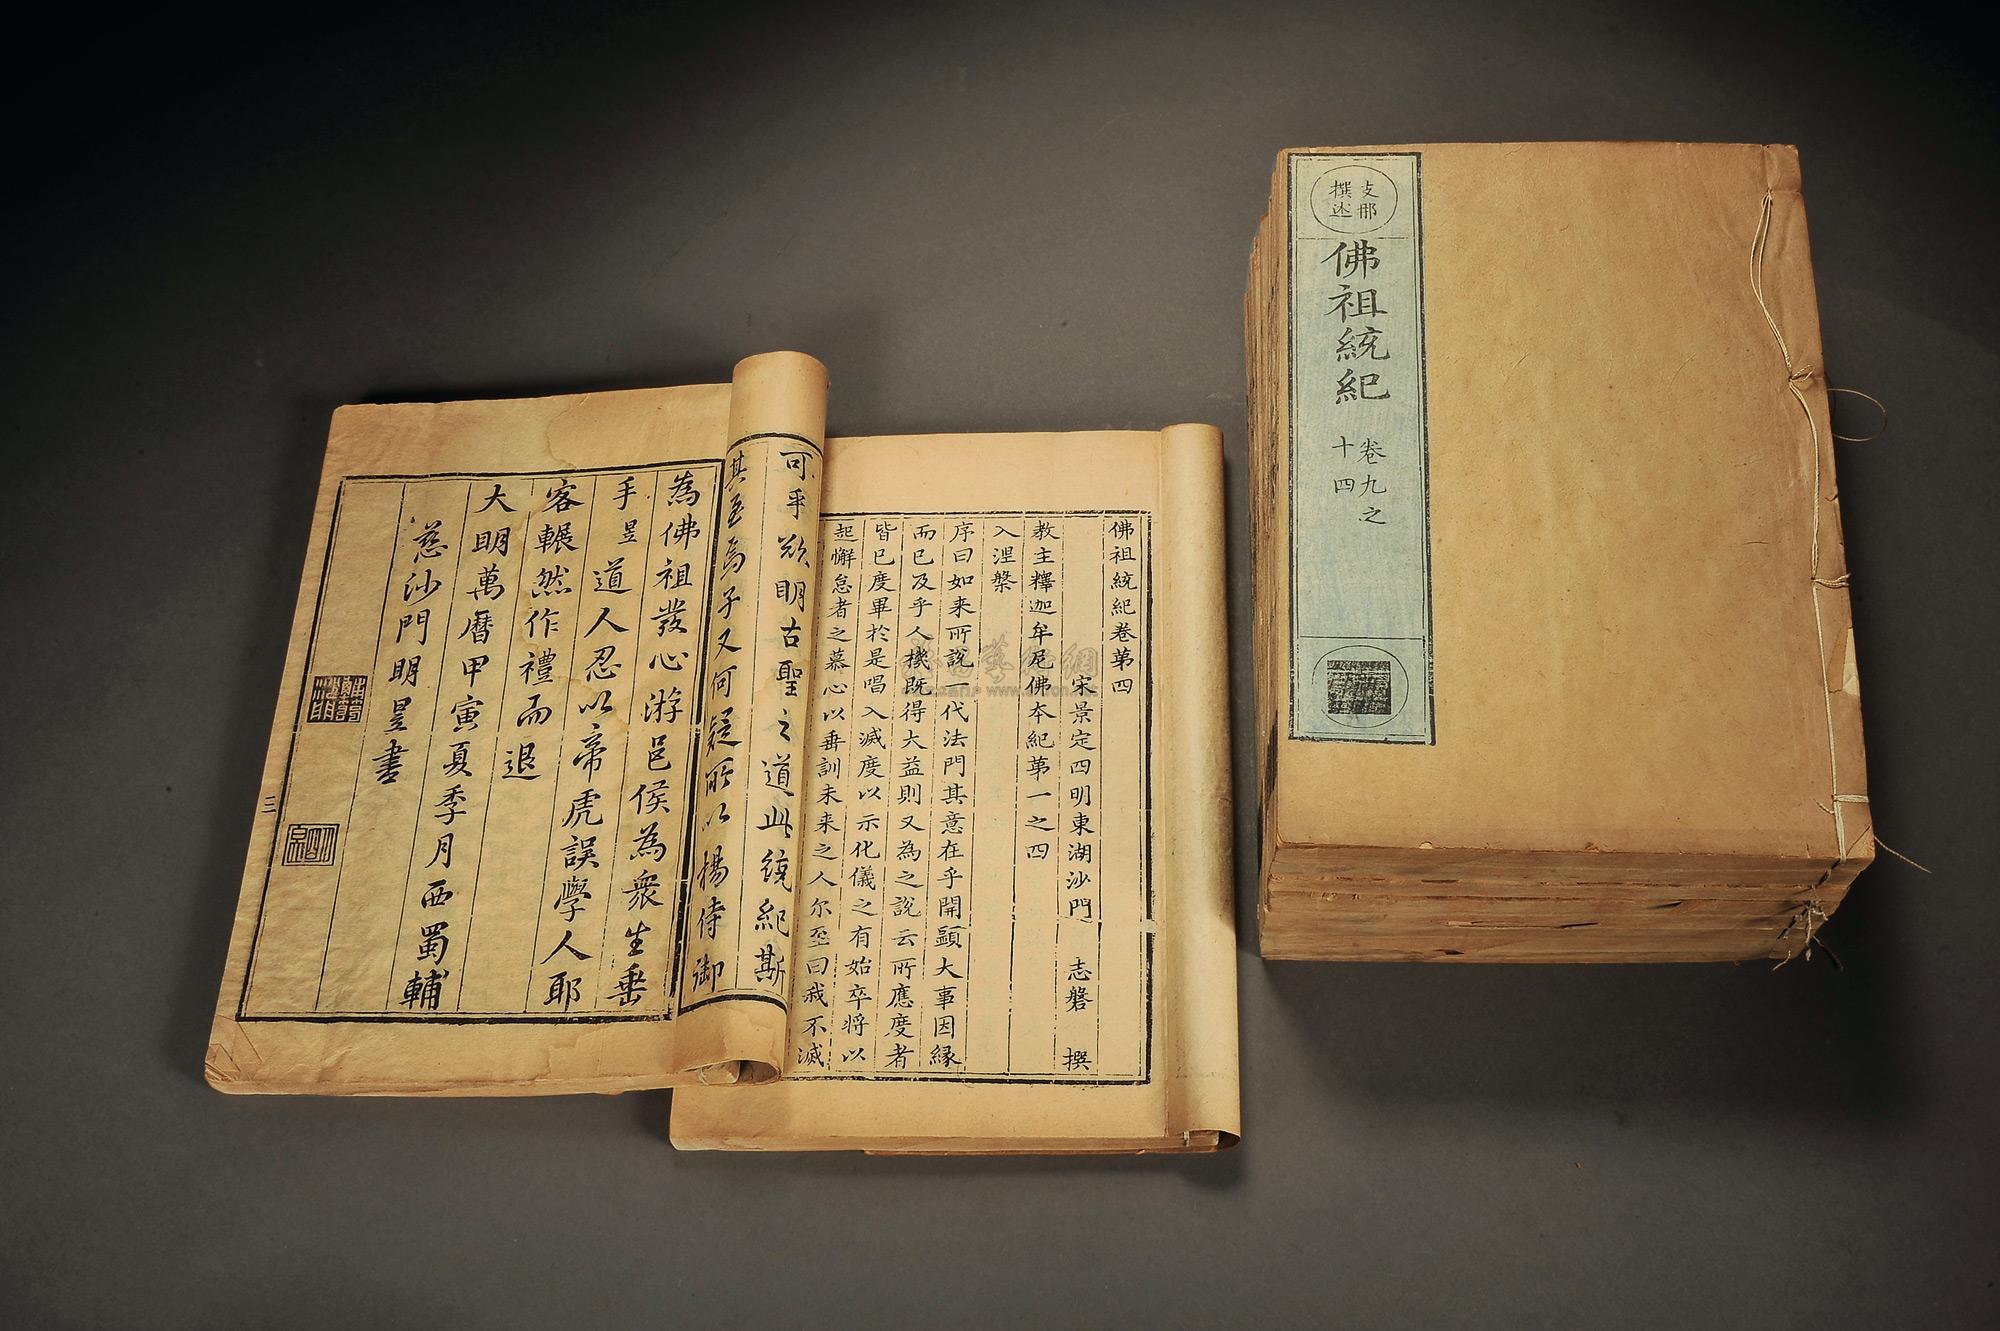 支那
撰述
佛祖統紀
卷九之
十四
佛祖統紀卷第四
宋景定四明東湖沙門 志磐 撰
教主釋迦牟尼佛本紀第一之四
入涅槃
序曰如来所說一代法門其意在乎開顯大事因緣
而已及乎人機既得大益則又為之說云所應度者
皆已度畢於是唱入滅度以示化儀之有始卒將以
起懈怠者之慕心以垂訓未来之人尔至曰我不滅
可乎欲明古聖之道此統紀斯
其至焉子又何疑所以楊侍御
為佛祖發心游邑侯為衆生垂
手昱道人忍以帝虎誤學人耶
客輾然作禮而退
大明萬曆甲寅夏季月西蜀輔
慈沙門明昱書
三